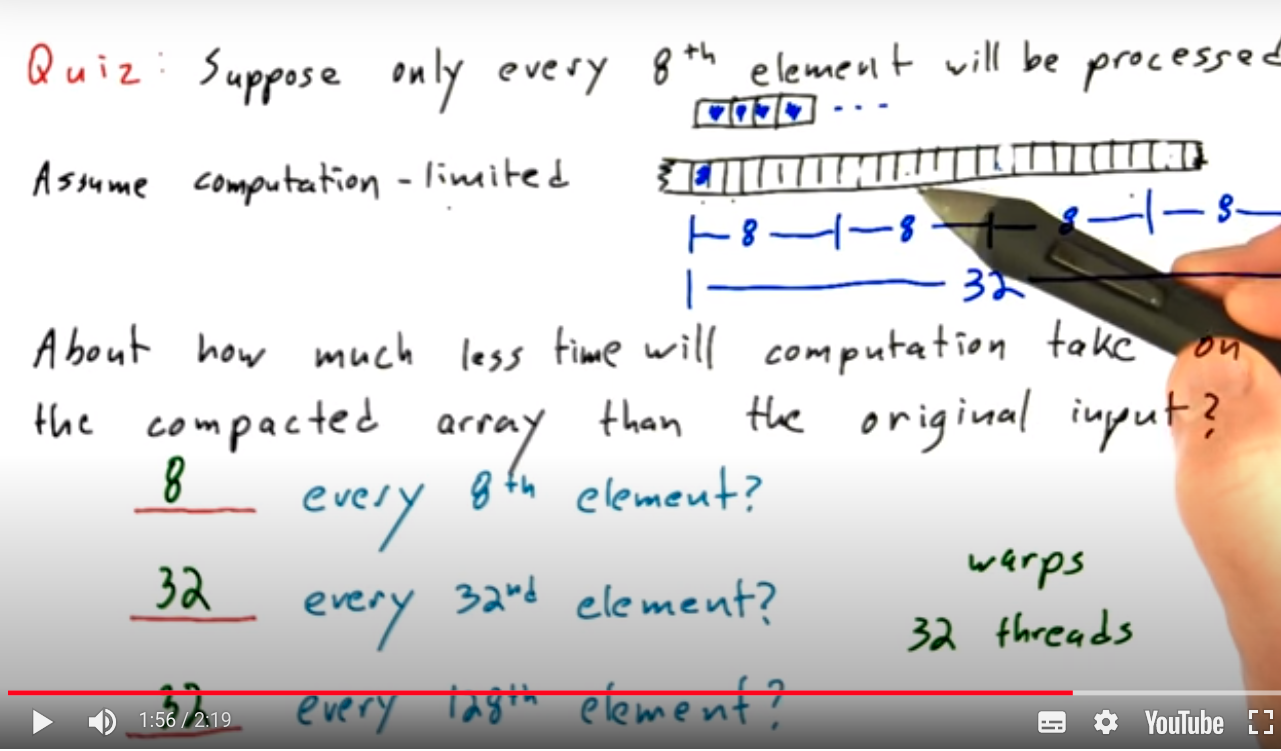 Quiz: Suppose only every 8th element will be processed
...
Assume computation-limited
8 8 8 8
32
About how much less time will computation take on
the compacted array than the original input?
8 every 8th element?
32 every 32nd element?
warps
32 threads
32 every 128th element?
1:56 / 2:19
YouTube